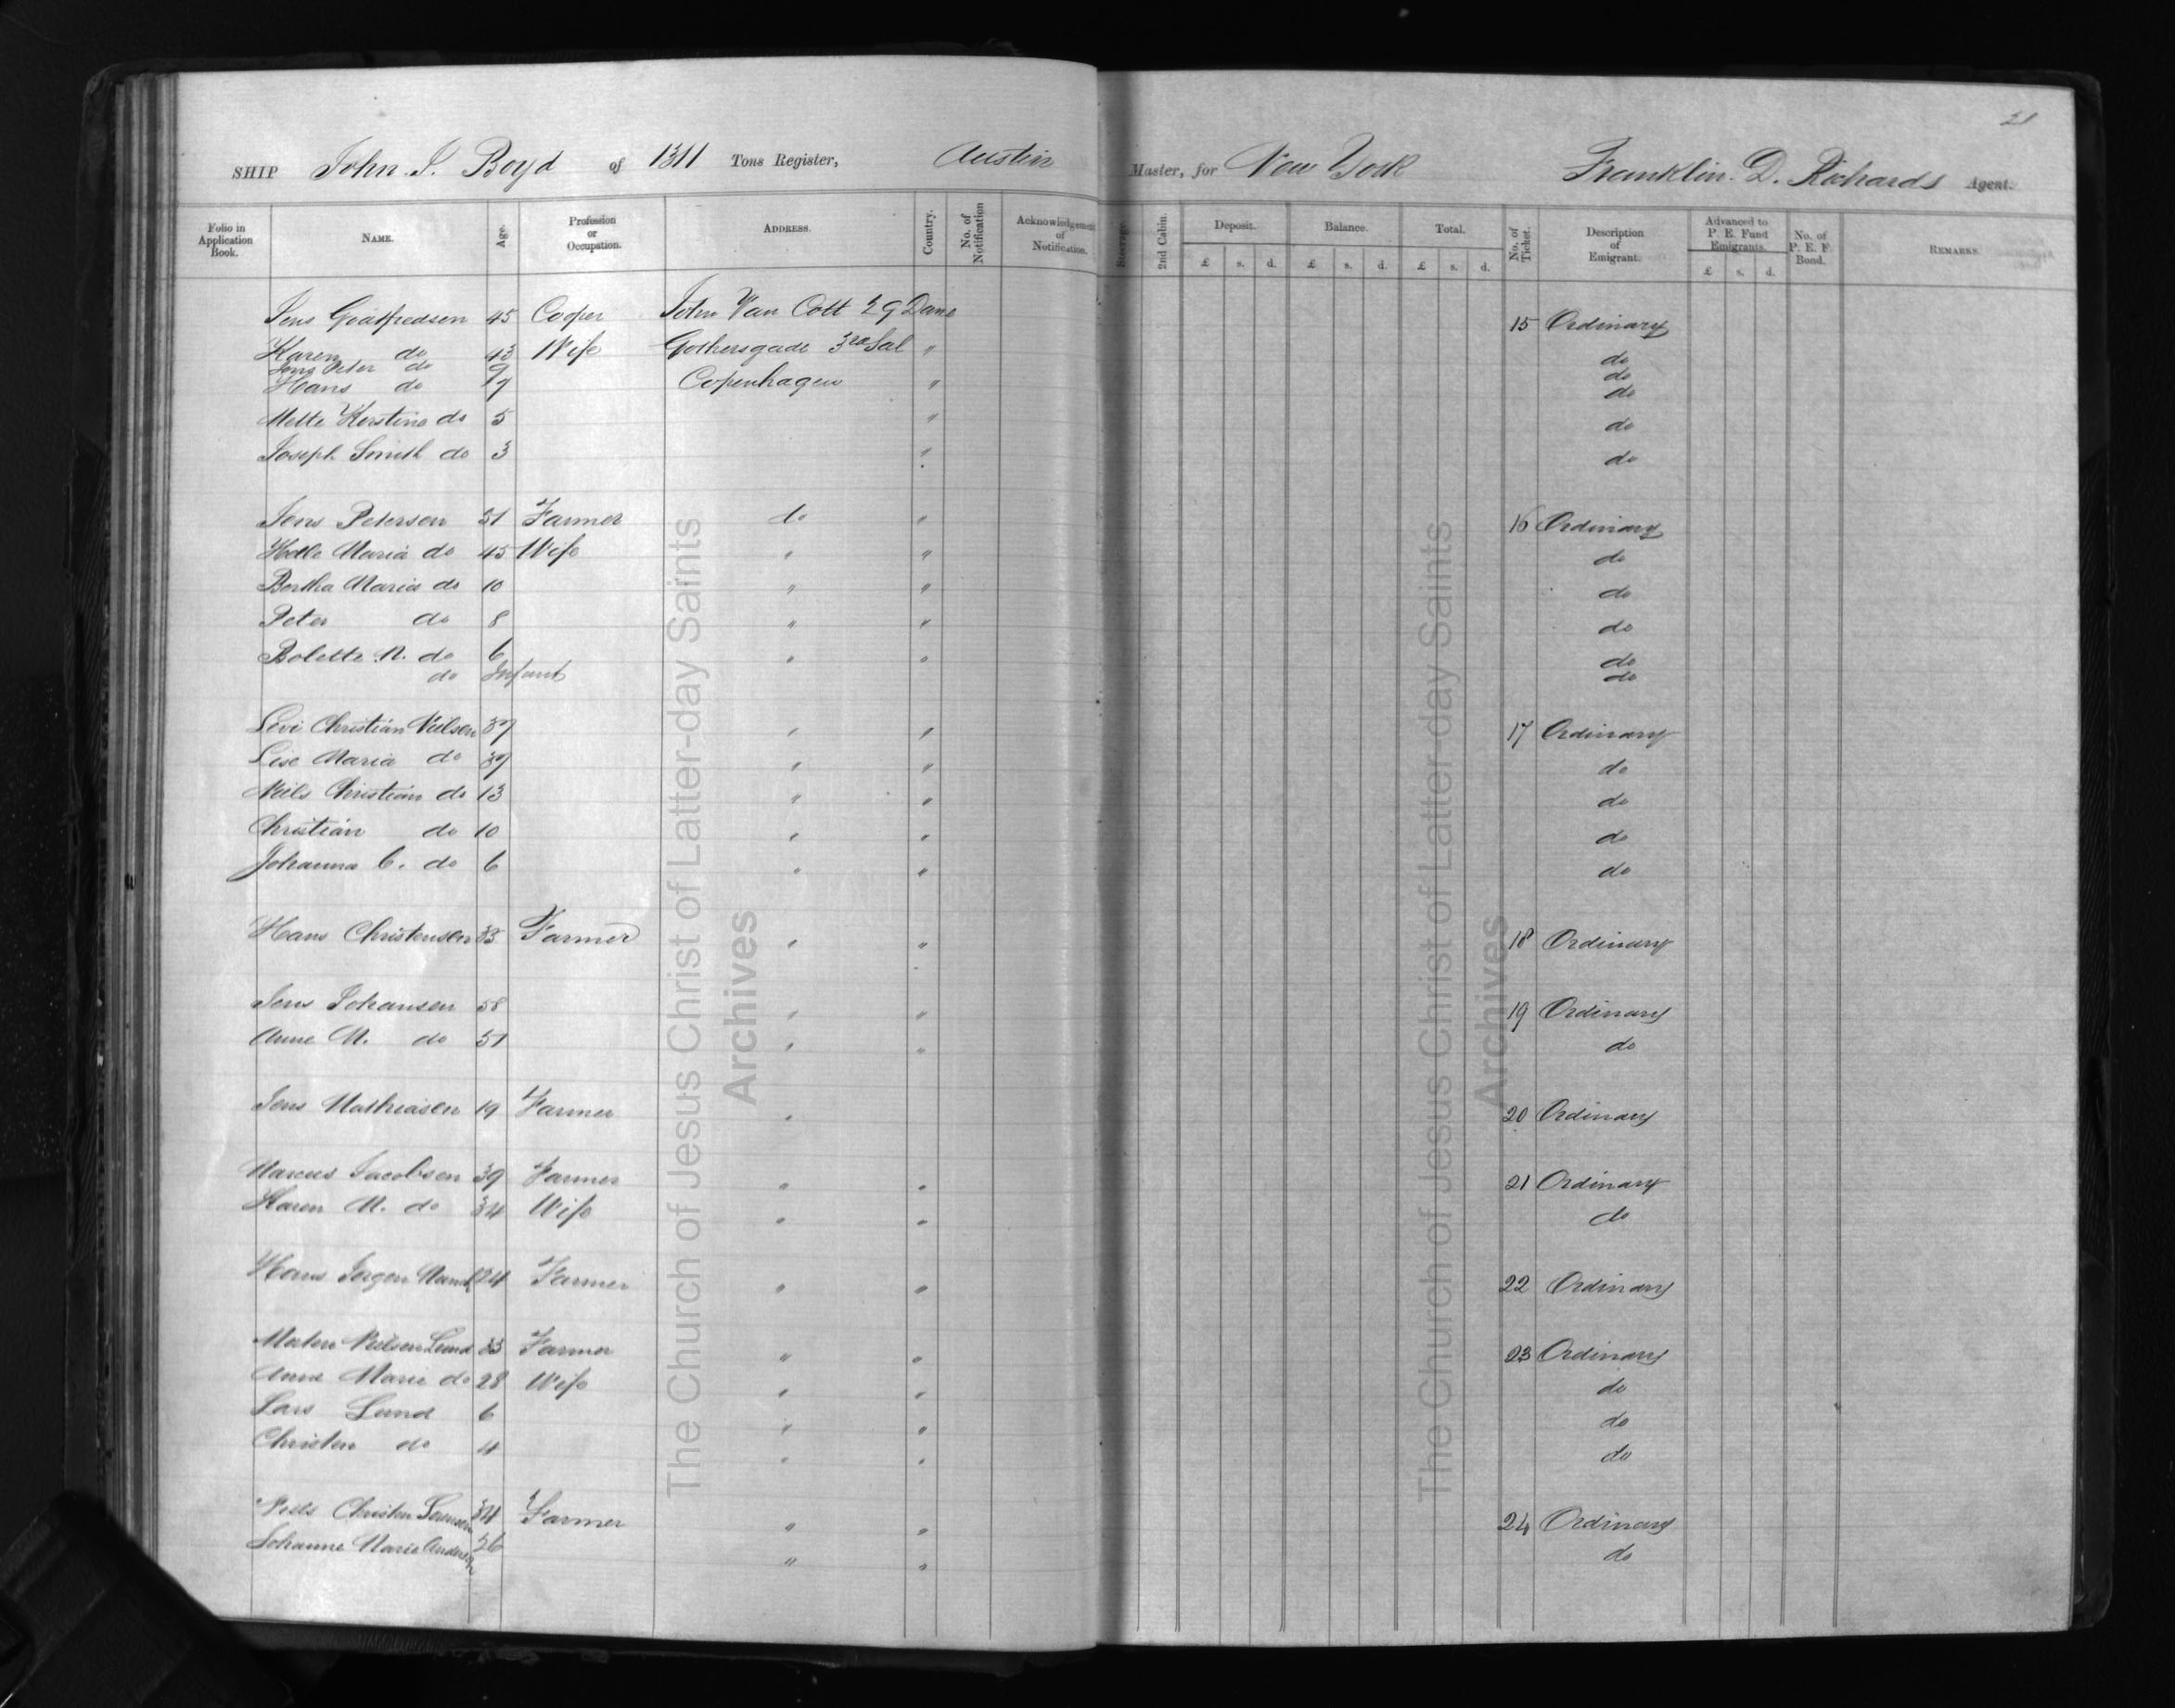 21
SHIP John. J. Boyd of 1311 Tons Register, Austin Master, for New York Franklin. D. Richards Agent.
Folio in Application Book. NAME. Age. Profession or Occupation. ADDRESS. Country. No. of Notification Acknowledgement of Notification. Steerage. 2nd Cabin. Deposit. Balance. Total. No. of Ticket. Description of Emigrant. Advanced to P. E. Fund Emigrants. No. of P. E. F. Bond. REMARKS.
£ s. d. £ s. d. £ s. d. £ s. d.
Jens Godfredsen 45 Cooper John Van Cott 29 Dane 15 Ordinary
Karen do 43 Wife Gothersgade 3rd Sal " do
Jens Peter do 9 do
Hans do 7 Copenhagen " do
Mette Kerstine do 5 " do
Joseph Smith do 3 " do
Jens Petersen 51 Farmer do " 16 Ordinary
Maria do 45 Wife " " do
Bertha Maria do 10 " " do
Peter do 8 " " do
Bolette M. do 6 " " do
do Infant do
Levi Christian Nielsen 37 " " 17 Ordinary
Lise Maria do 39 " " do
Niels Christian do 13 " " do
Christian do 10 " " do
Johanna C. do 6 " " do
Hans Christensen 33 Farmer " " 18 Ordinary
Jens Johansen 58 " " 19 Ordinary
Anne M. do 51 " " do
Jens Mathiasen 19 Farmer " 20 Ordinary
Marcus Jacobsen 39 Farmer " " 21 Ordinary
Karen M. do 34 Wife " " do
Hans Jorgen 24 Farmer " " 22 Ordinary
Morten Nielsen Lund 33 Farmer " " 23 Ordinary
Anna Marie do 28 Wife " " do
Lars Lund 6 " " do
Christen do 4 " " do
Niels Christen Sorensen 34 Farmer " " 24 Ordinary
Johanne Marie Andersen 26 " " do
The Church of Jesus Christ of Latter-day Saints
Archives
The Church of Jesus Christ of Latter-day Saints
Archives